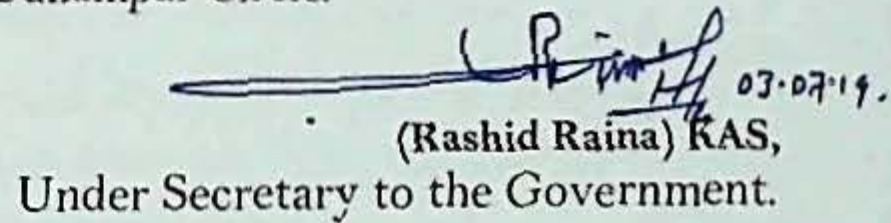 03.07.19.
(Rashid Raina) KAS,
Under Secretary to the Government.